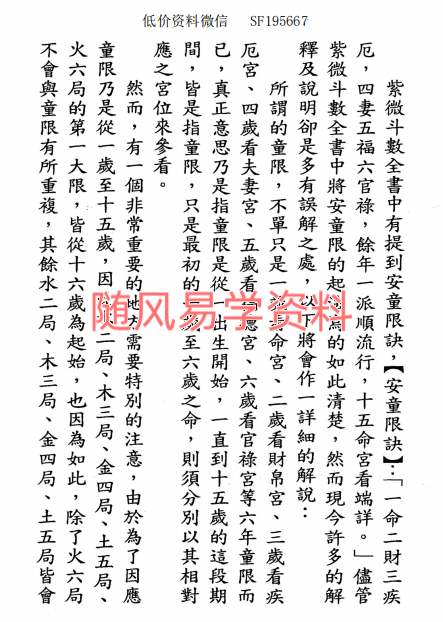 低价资料微信 SF195667
紫微斗數全書中有提到安童限訣,【安童限訣】:「一命二財三疾
厄,四妻五福六官祿,餘年一派順流行,十五命宮看端詳。」儘管
紫微斗數全書中將安童限的起的如此清楚,然而現今許多的解
釋及說明卻是多有誤解之處,以下將會作一詳細的解說:
所謂的童限,不單只是一歲看命宮、二歲看財帛宮、三歲看疾
厄宮、四歲看夫妻宮、五歲看福德宮、六歲看官祿宮等六年童限而
已,真正意思乃是指童限是從一出生開始,一直到十五歲的這段期
間,皆是指童限,只是最初的一歲至六歲之命,則須分別以其相對
應之宮位來參看。
然而,有一個非常重要的地方需要特別的注意,由於為了因應
童限乃是從一歲至十五歲,因二局、木三局、金四局、土五局、
火六局的第一大限,皆從十六歲為起始,也因為如此,除了火六局
不會與童限有所重複,其餘水二局、木三局、金四局、土五局皆會
随风易学资料